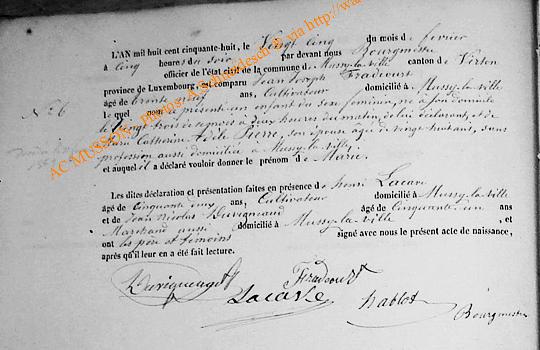 L'AN mil huit cent cinquante-huit, le Vingt Cinq du mois de fevrier
à Cinq heures du Soir par devant nous Bourgmestre
officier de l'état civil de la commune de Mussy-la-ville canton de Virton
province de Luxembourg, est comparu Jean Joseph Fradcourt
âgé de trente neuf ans, Cultivateur domicilié à Mussy-la-ville
No 6
le quel nous a présenté un enfant du sexe feminin, né a son domicile
le Vingt trois de ce mois à deux heures du matin, de lui déclarant et de
Marie Catherine Adèle Pierre, son épouse âgée de vingt huit ans, sans
profession aussi domiciliée à Mussy-la-ville
et auquel il a déclaré vouloir donner le prénom de Marie.
Les dites déclaration et présentation faites en présence de henri Lacave
âgé de Cinquante cinq ans, Cultivateur domicilié à Mussy-la-ville
et de Jean Nicolas Duvigneaud âgé de Cinquante un ans
Marchand aussi domicilié à Mussy-la-ville , et
ont les père et témoins signé avec nous le présent acte de naissance,
après qu'il leur en a été fait lecture.
Fradcourt
Lacave hablot
Bourgmestre
AC MUSSON, Photos: A.Schandesch et via http://wa